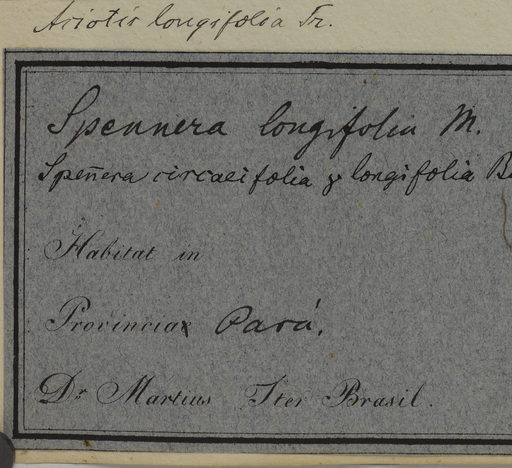 Aciotis longifolia Tr.
Spennera longifolia M.
Speñera circaeifolia γ longifolia
Habitat in
Provinciae Pará.
Dr. Martius Iter Brasil.